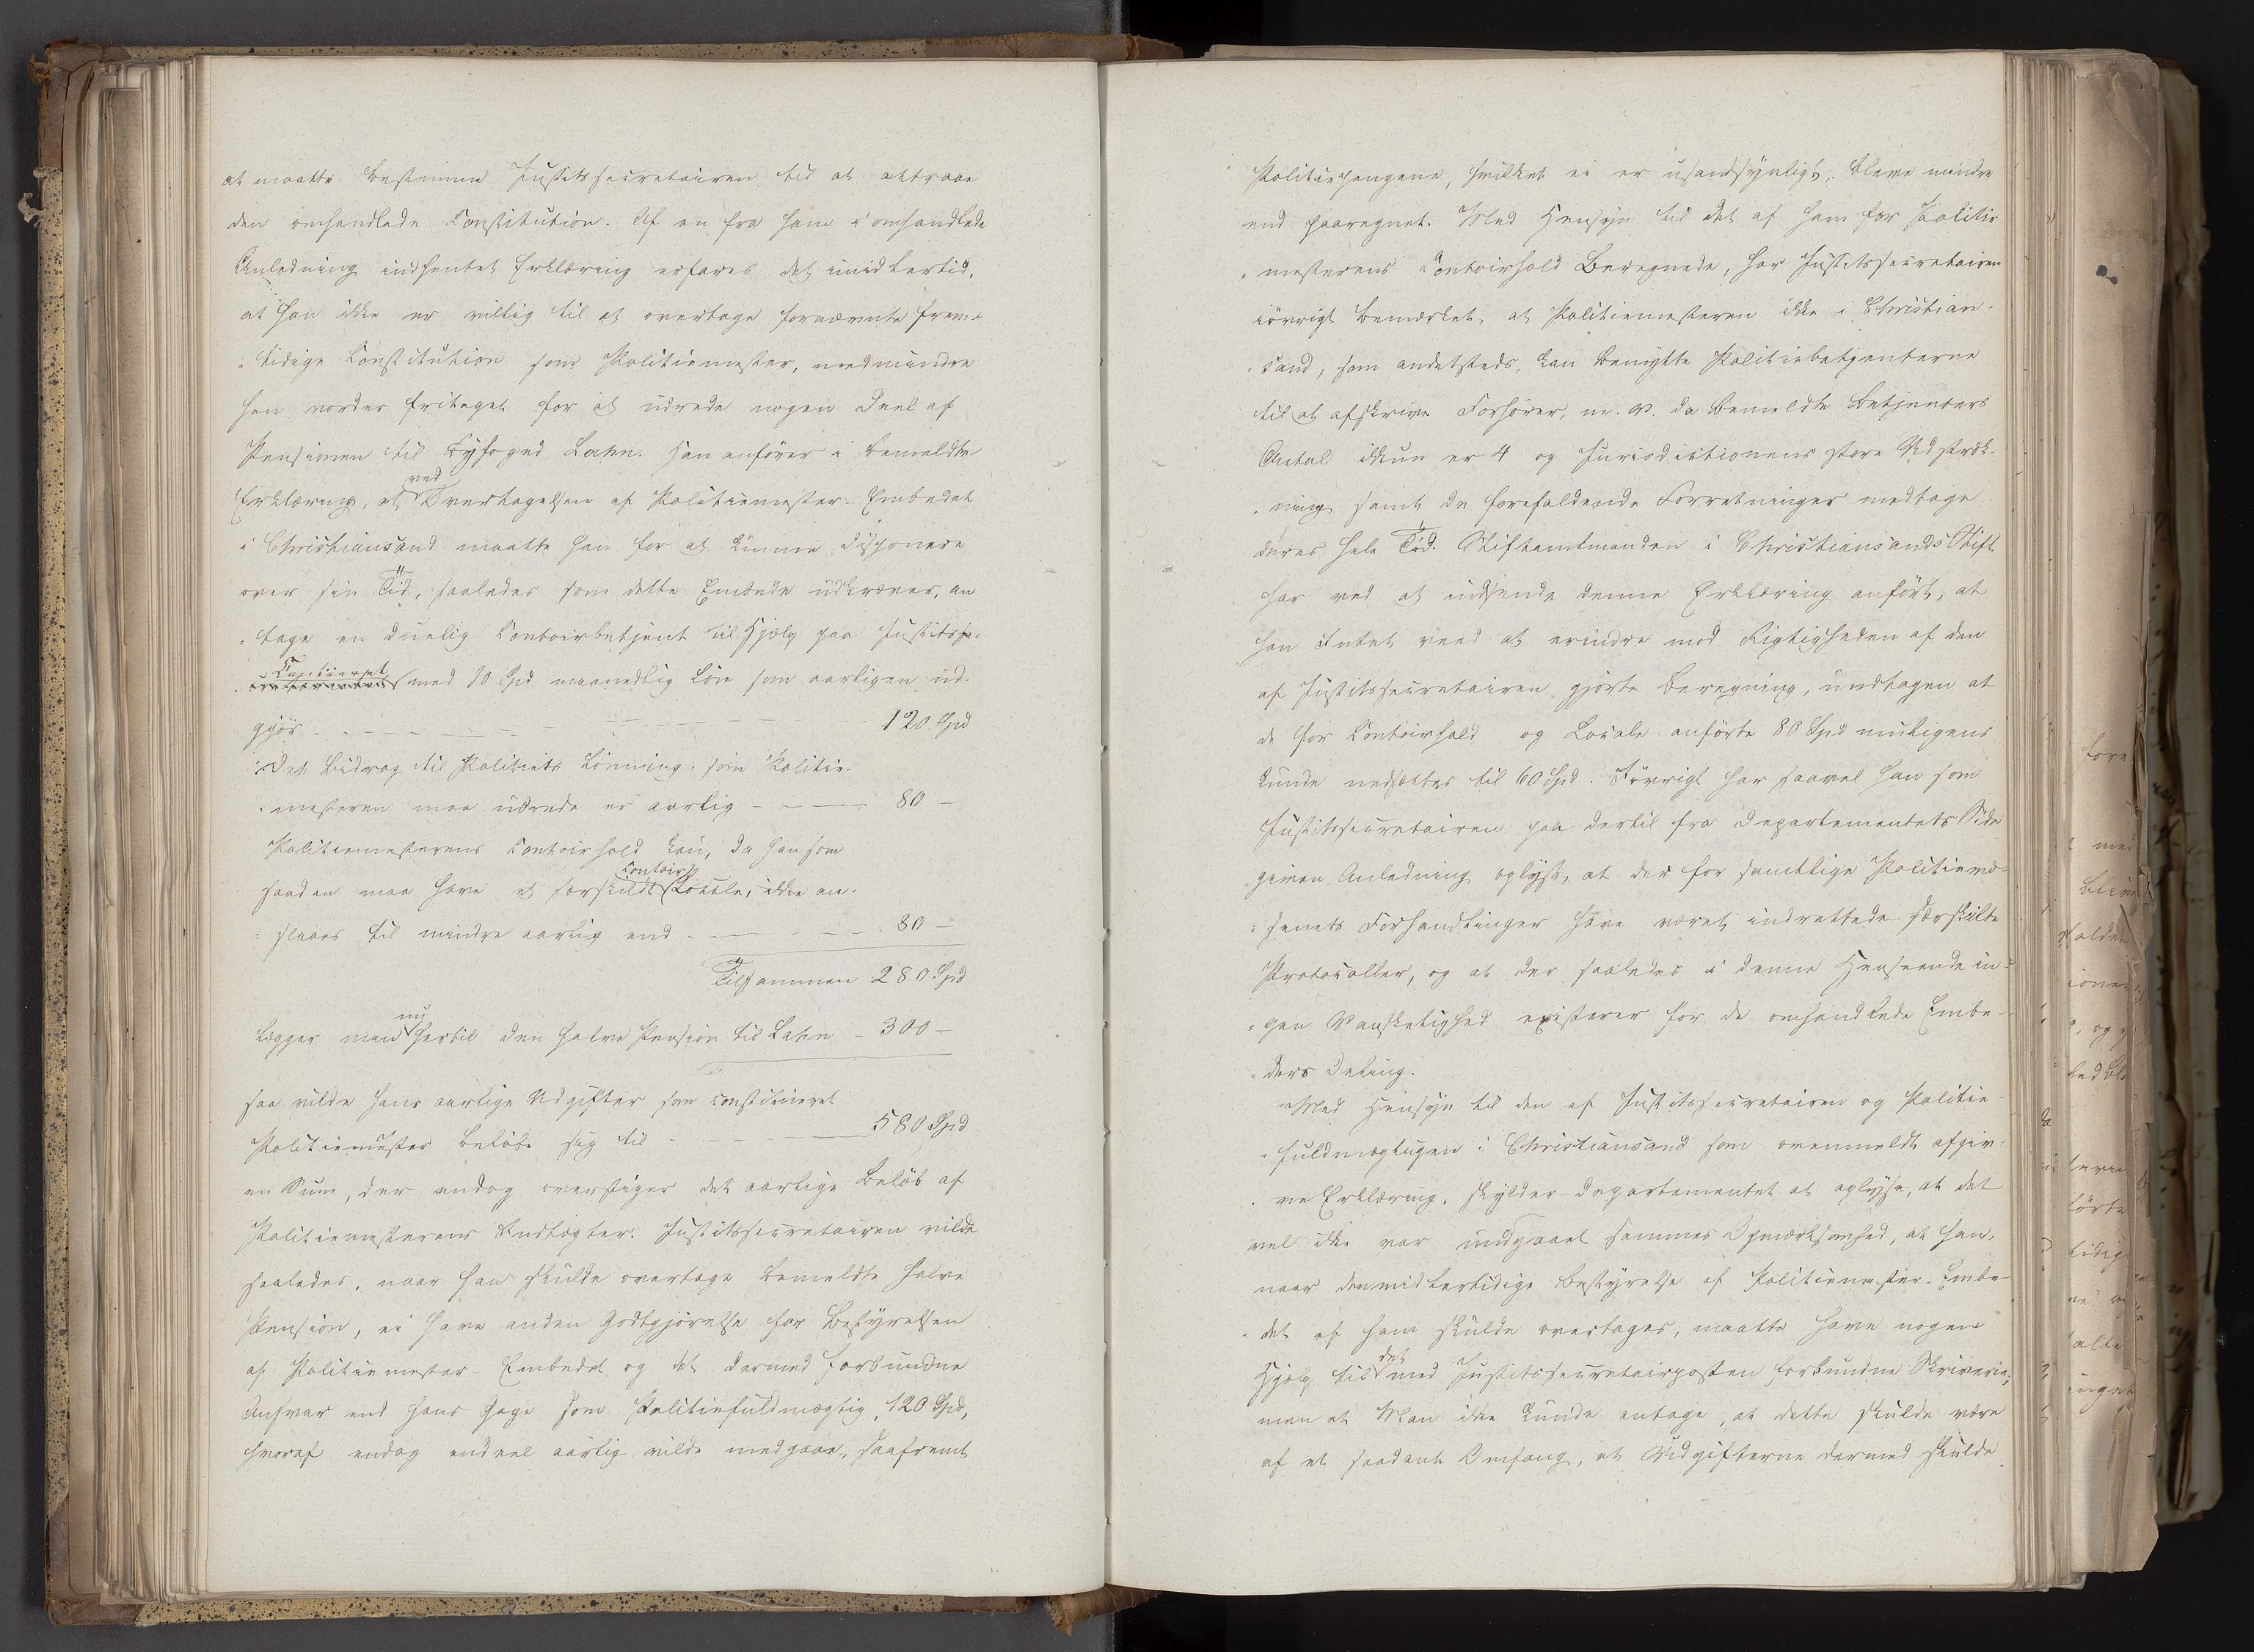 at maatte bestemme Justitssecretairen til at attraae
den omhandlede Constitution. Af en fra ham i omhandlede
Anledning indhentet Erklæring erfares det imidlertid,
at han ikke er villig til at overtage fornævnte frem-
tidige Constitution som Politiemester, medmindre
han vorder fritaget for at udrede nogen Deel af
Pensionen til Byfoged Lahn. Han anfører i bemeldte
Erklæring, at ved Overtagelsen af Politiemester-Embedet
i Christiansand maatte han for at kunne disponere
over sin Tid, saaledes som dette Embede udkræver, an
tage en duelig Contoirbetjent til Hjælp paa Justitsse-
med 10 Spd maanedlig Løn som aarligen ud-
gjør - - - 120 Spd
Det Bidrag til Politiets Lønning, som Politie-
mesteren maa udrede er aarlig - - - 80 -
Politiemesterens Contoirhold kan, da han som
saadan maa have et særskildt Contoir Locale, ikke an-
slaaes til mindre aarlig end - - - 80 -
Tilsammen 280 Spd
Lægger man nu hertil den halve Pension til Lahn - 300 -
saa vilde hans aarlige Udgifter som constitueret
Politiemester beløbe sig til - - - 580 Spd
en Sum, der endog overstiger det aarlige Beløb af
Politiemesterens Indtægter. Justitssecretairen vilde
saaledes, naar han skulde overtage bemeldte halve
Pension, ei have anden Godtgjørelse for Bestyrelsen
af Politiemester-Embedet og det dermed forbundne
Ansvar end hans Gage som Politiefuldmægtig, 120 Spd,
hvoraf endog endeel aarlig vilde medgaae, saafremt
Politiepengene, hvilket ei er usandsynligt, bleve mindre
end paaregnet. Med Hensyn til det af ham for Politie
mesterens Contoirhold Beregnede, har Justitssecretairen
iøvrigt bemærket, at Politiemesteren ikke i Christian-
sand, som andetsteds, kan benytte Politiebetjenterne
til at afskrive Forhører, m. v. da bemeldte Betjenters
Antal ikkun er 4 og Jurisdictionens store Udstræk-
ning samt de forefaldende Forretninger medtage
deres hele Tid. Stiftamtmanden i Christiansands Stift
har ved at indsende denne Erklæring anført, at
han Intet veed at erindre mod Rigtigheden af den
af Justitssecretairen gjorte Beregning, undtagen at
de for Contoirhold og Locale anførte 80 Spd muligens
kunde nedsættes til 60 Spd. Iøvrigt har saavel han som
Justitssecretairen paa dertil fra Departementets Side
given Anledning oplyst, at der for samtlige Politievæ-
senets Forhandlinger have været indrettede særskilte
Protocoller, og at der saaledes i denne Henseende in-
gen Vanskelighed existerer for de omhandlede Embe-
ders Deling.
Med Hensyn til den af Justitssecretairen og Politie-
fuldmægtigen i Christiansand som ovenmeldt afgiv-
ne Erklæring, skylder Departementet at oplyse, at det
vel ikke var undgaaet sammes Opmærksomhed, at han,
naar den midlertidige Bestyrelse af Politiemester-Embe-
det af ham skulde overtages, maatte have nogen
Hjælp til det med Justitssecretairposten forbundne Skriverie,
men at Man ikke kunde antage, at dette skulde være
af et saadant Omfang, at Udgifterne dermed skulde